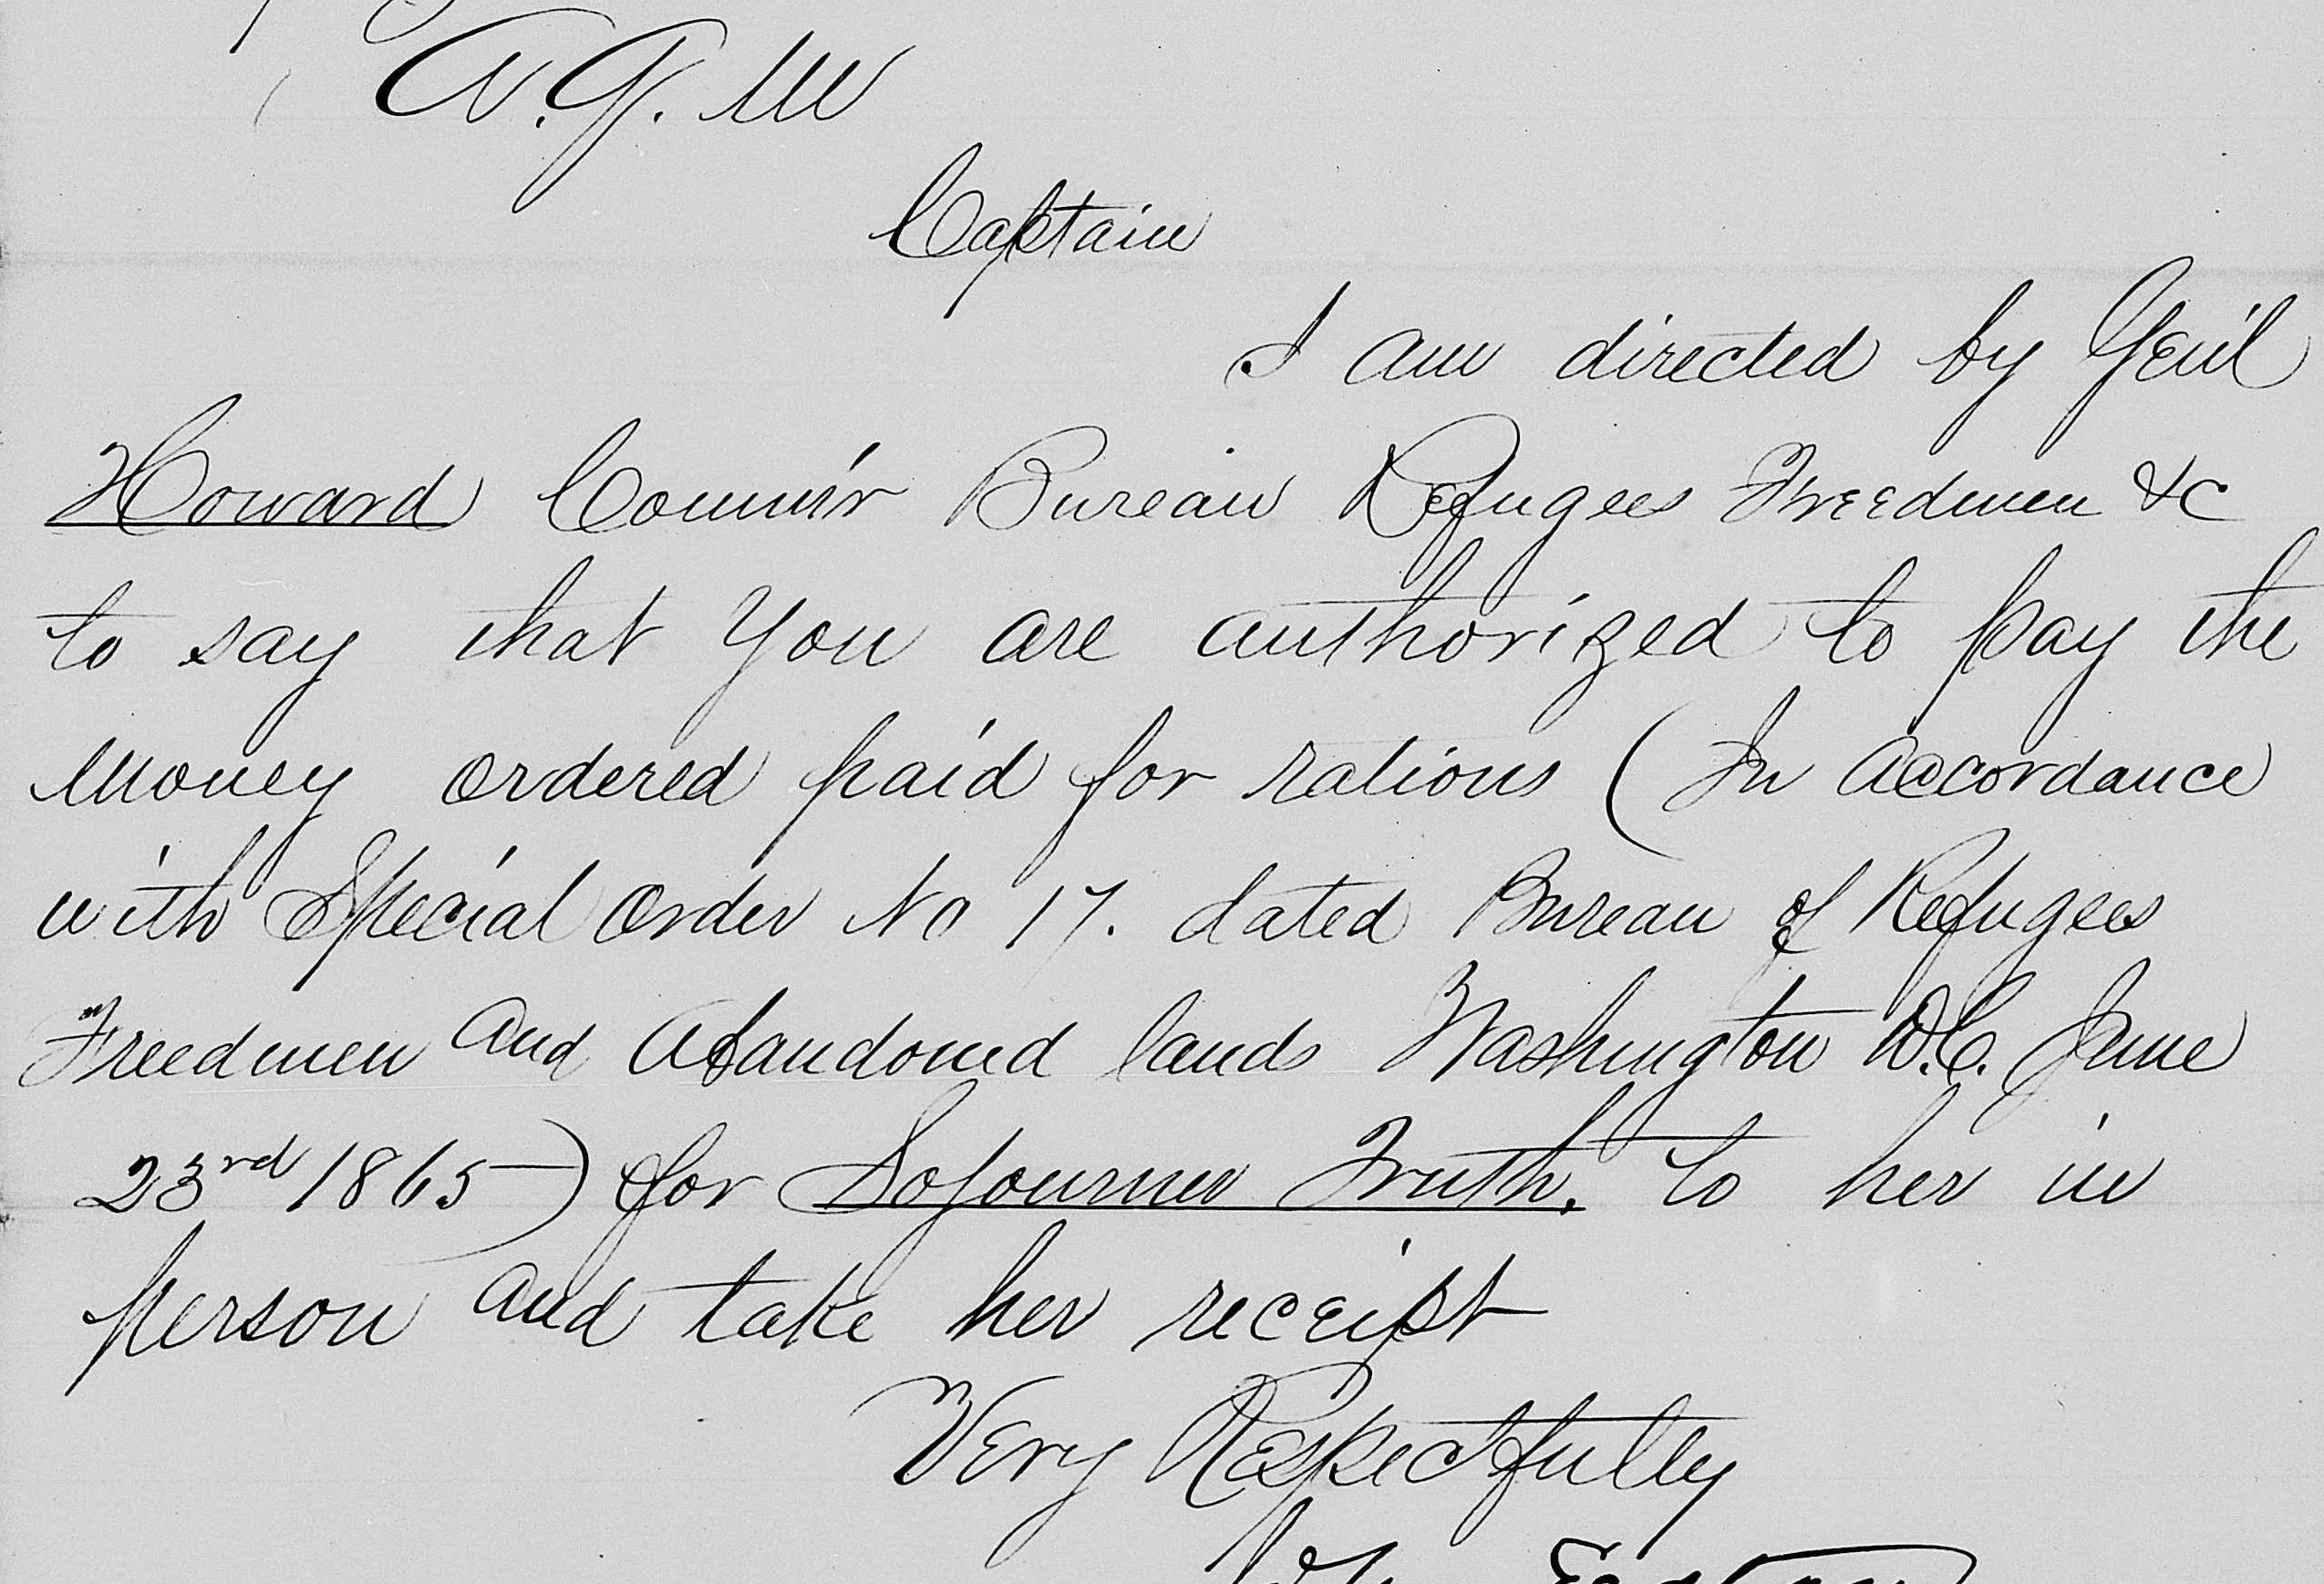 A.Q.M
Captain
I am directed by Gen'l
Howard Comm'r Bureau Refugees Freedmen &c
to say that You are authorized to pay the
Money ordered paid for rations (In accordance
with Special Order No 17. dated Bureau of Refugees
Freedmen and Abandoned lands Washington D.C. June
23rd 1865) for Sojourner Truth. to her in
person and take her receipt
Very Respectfully